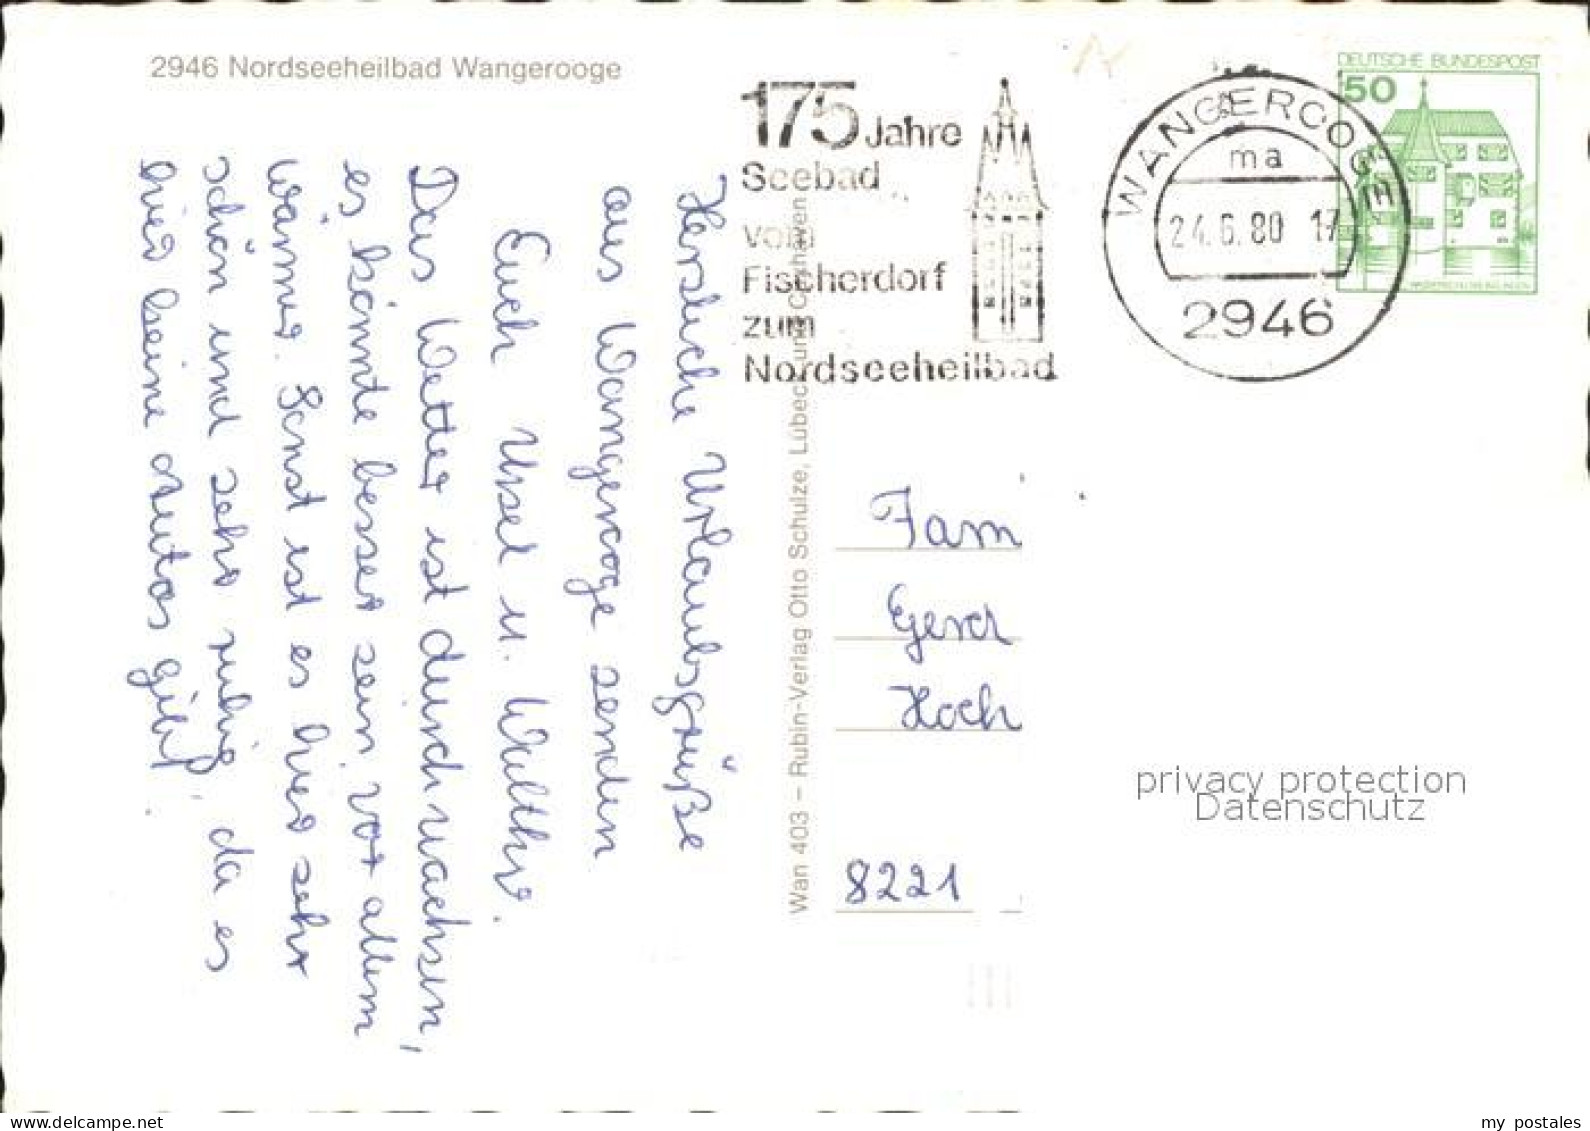 2946 Nordseeheilbad Wangerooge
175 Jahre
Seebad
vom
Fischerdorf
zum
Nordseeheilbad
WANGEROOGE
ma
24.6.80 17
2946
DEUTSCHE BUNDESPOST
50
Herzliche Urlaubsgrüße
aus Wangerooge senden
Euch Ursel u. Walther.
Das Wetter ist durchwachsen,
es könnte besser sein, vor allem
wärmer. Sonst ist es hier sehr
schön und sehr ruhig, da es
hier keine Autos gibt.
Wan 403 – Rubin-Verlag Otto Schulze, Lübeck und Cuxhaven
Fam
Gerd
Hoch
8221
privacy protection
Datenschutz
my postales